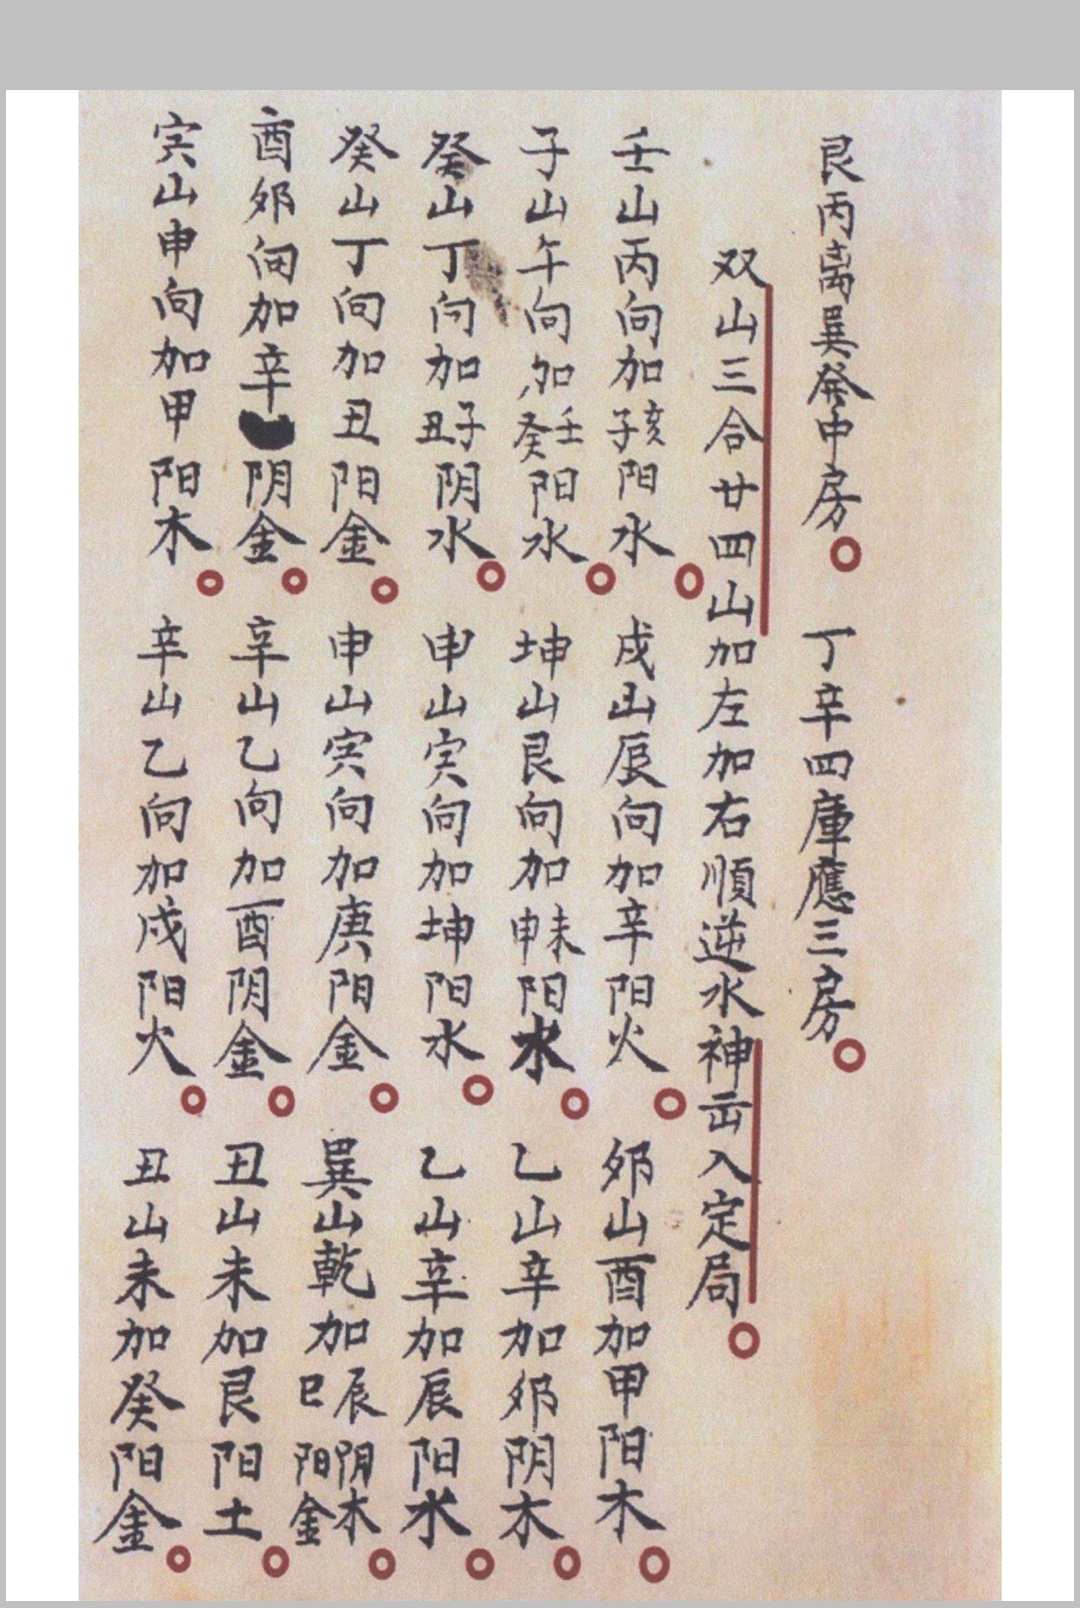 艮丙离巽癸中房 丁辛四庫應三房
双山三合廿四山加左加右順逆水神云入定局
壬山丙向加子亥阳水 戍山辰向加辛阳火 夘山酉加甲阳木
子山午向加癸壬阳水 坤山艮向加申未阳水 乙山辛加夘阴木
癸山丁向加丑子阴水 申山寅向加坤阳水 乙山辛加辰阳水
癸山丁向加丑阳金 申山寅向加庚阳金 巽山乾加巳辰阳金阴木
酉夘向加辛阴金 辛山乙向加酉阴金 丑山未加艮阳土
寅山申向加甲阳木 辛山乙向加戍阳火 丑山未加癸阳金